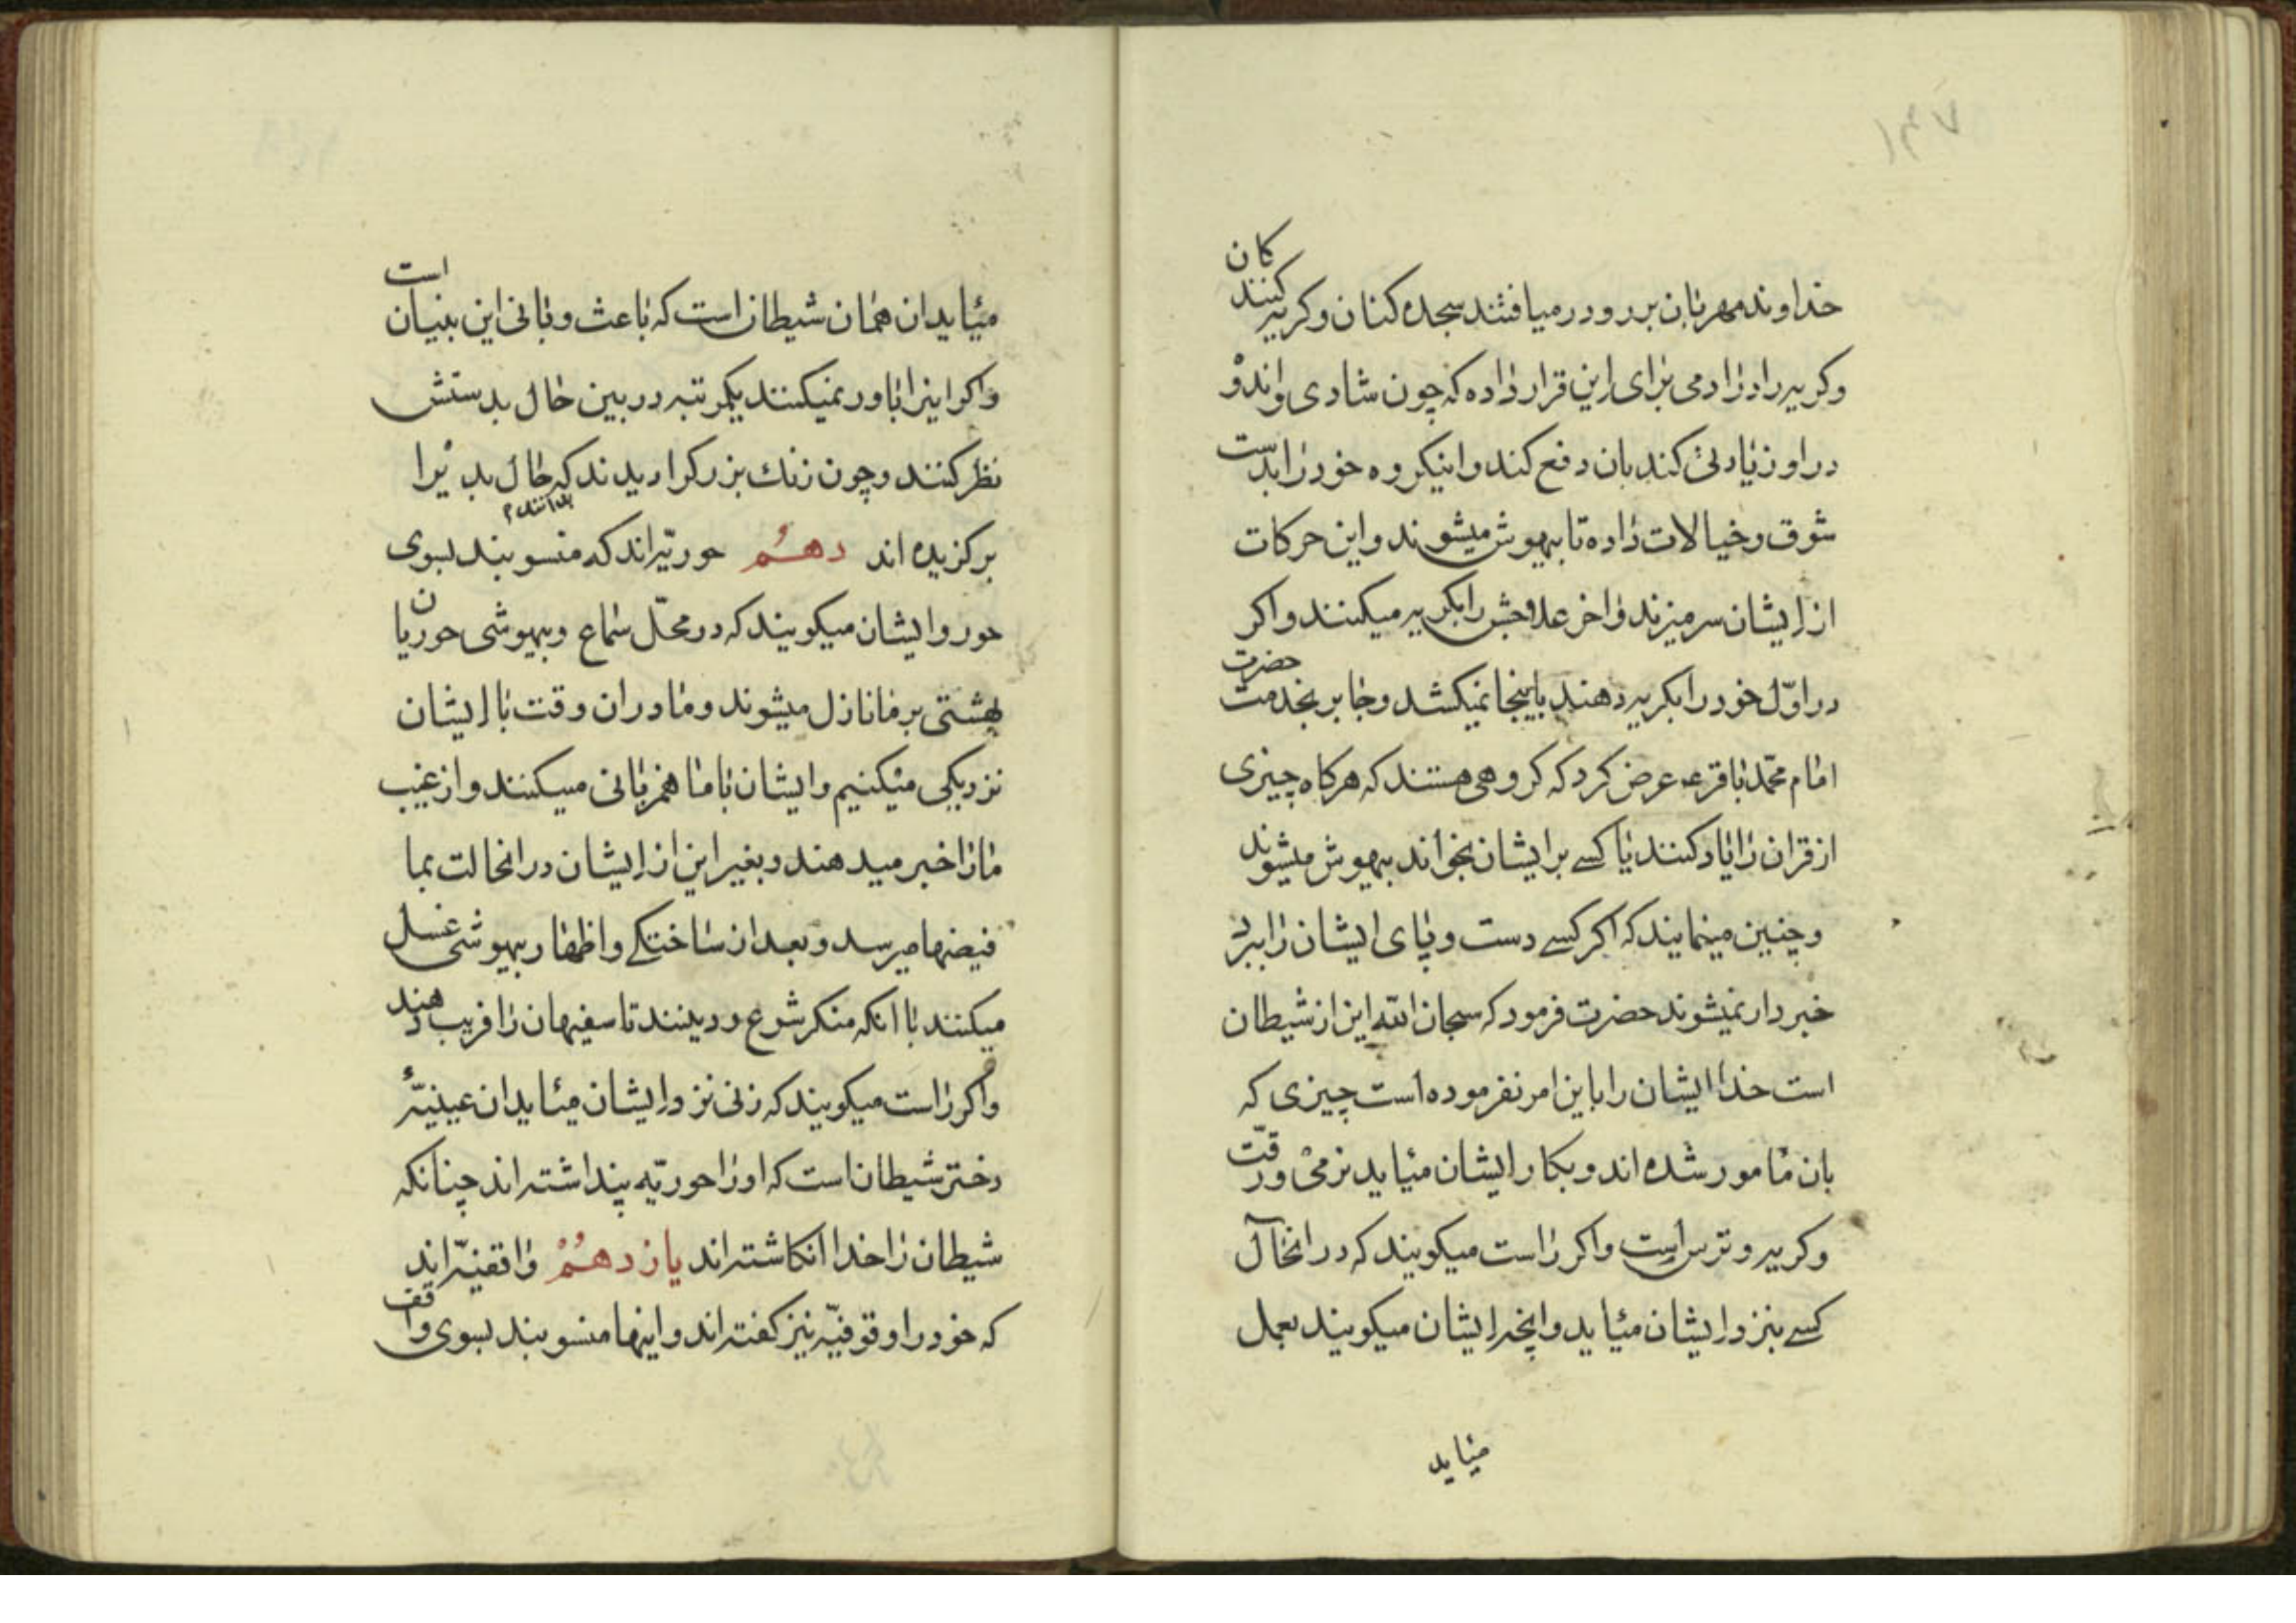 ۱۴۷
خداوند مهربان برو در میافتند سجده کنان و کریه کنندکان
و کریه را در ادمی برای این قرار داده که چون شادی و اندوْ
در او زیادتی کند بان دفع کند و اینکروه خود را بدست
شوق و خیالات داده تا بیهوش میشوند و این حرکات
از ایشان سر میزند و اخر علاجش را بکریه میکنند و اکر
در اوّل خود را بکریه دهند باینجا نمیکشد و جابر بخدمت حضرت
امام محمّد باقر عه عرض کرد که کروهی هستند که هرکاه چیزی
از قران را یاد کنند یا کسے بر ایشان بخواند بیهوش میشوند
و چنین مینمایند که اکر کسے دست و پای ایشان را ببرد
خبردار نمیشوند حضرت فرمود که سبحان الله این از شیطان
است خدا ایشان را باین امر نفرموده است چیزی که
بان مامور شده اند و بکار ایشان میاید نرمی و رقّت
و کریه و ترس است و اکر راست میکویند که در انحال
کسے بنزد ایشان میاید و انچه ایشان میکویند بعمل
میاید
میاید ان همان شیطان است که باعث و بانی این بنیان است
و اکر اینرا باور نمیکنند یکمرتبه در بین حال بدستش
نظر کنند و چون زنك بزرکرا دیدند که حال بد یرا
برکزیده اند دهُم حوریّه اند که منسوبند بسوی
حور و ایشان میکویند که در محلّ سماع و بیهوشی حوریان
بهشتی بر ما نازل میشوند و ما در ان وقت با ایشان
نزدیکی میکنیم و ایشان با ما همزبانی میکنند و از غیب
ما را خبر میدهند و بغیر این از ایشان در انحالت بما
فیضها میرسد و بعد از ساختکے و اظهار بیهوشی غسل
میکنند با انکه منکر شرع و دینند تا سفیهان را فریب دهند
و اکر راست میکویند که زنی نزد ایشان میاید ان عینیّهٔ
دختر شیطان است که او را حوریّه پنداشته اند چنانکه
شیطان را خدا انکاشته اند یازدهُمْ واقفیّه اند
که خود را وقوفیّه نیز کفته اند و اینها منسوبند بسوی واقف